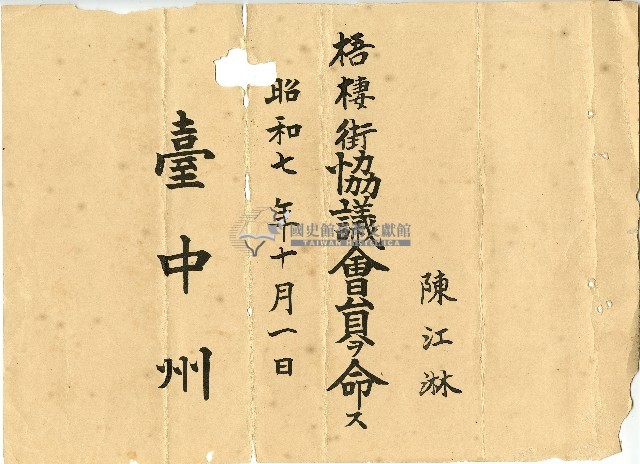 陳江淋
梧棲街協議會員ヲ命ス
昭和七年十月一日
臺中州
國史館臺灣文獻館
TAIWAN HISTORICA